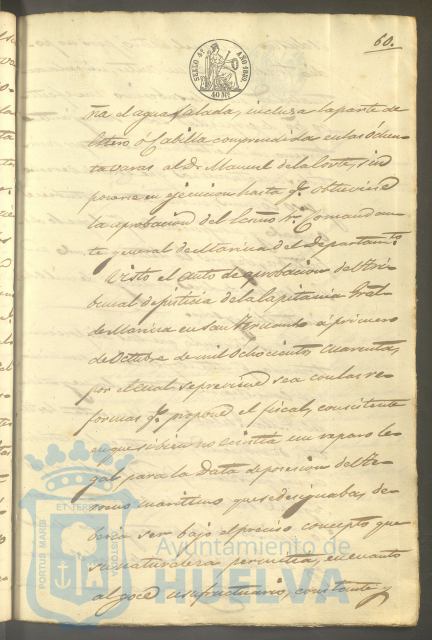 60.
SELLO 4º AÑO 1860.
40 Ms
ña el agua salada, inclusa la parte de
Estero ó Cabilla comprendida en las ochen-
ta varas al Dn. Manuel de la Corte, sin
ponerse en ejecucion hasta qe. obtuviese
la aprobacion del Escmo Sr. Comandan-
te general de Marina del Departamto.
Visto el auto de aprobacion del Tri-
bunal de justicia de la Capitania Gral
de Marina en San Fernando á primero
de Octubre de mil ochocientos cuarenta,
por el cual se previene sea con las re-
formas qe. propone el fiscal, consistente
en que si bien no ecsistia un reparo le-
gal para la data de posesion del Te-
rreno maritimo que se designaba, de-
beria ser bajo el preciso concepto que
su naturaleza permitia, en cuanto
al goce usufructuario, constante y
PORTUS MARIS ET TERRAE CUSTODIA
Ayuntamiento de
HUELVA